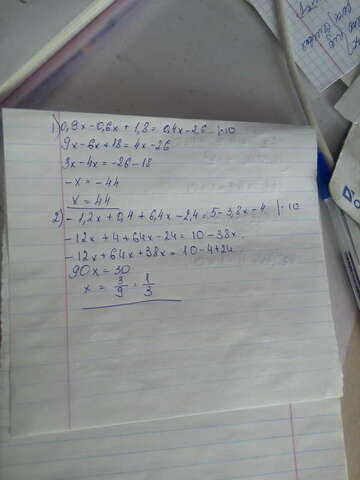 1) 0,9x-0,6x+1,8=0,4x-2,6 |·10
9x-6x+18=4x-26
3x-4x=-26-18
-x=-44
x=44
2) -1,2x+0,4+6,4x-2,4=5-3,8x-4 |·10
-12x+4+64x-24=10-38x
-12x+64x+38x=10-4+24
90x=30
x = 3/9 = 1/3